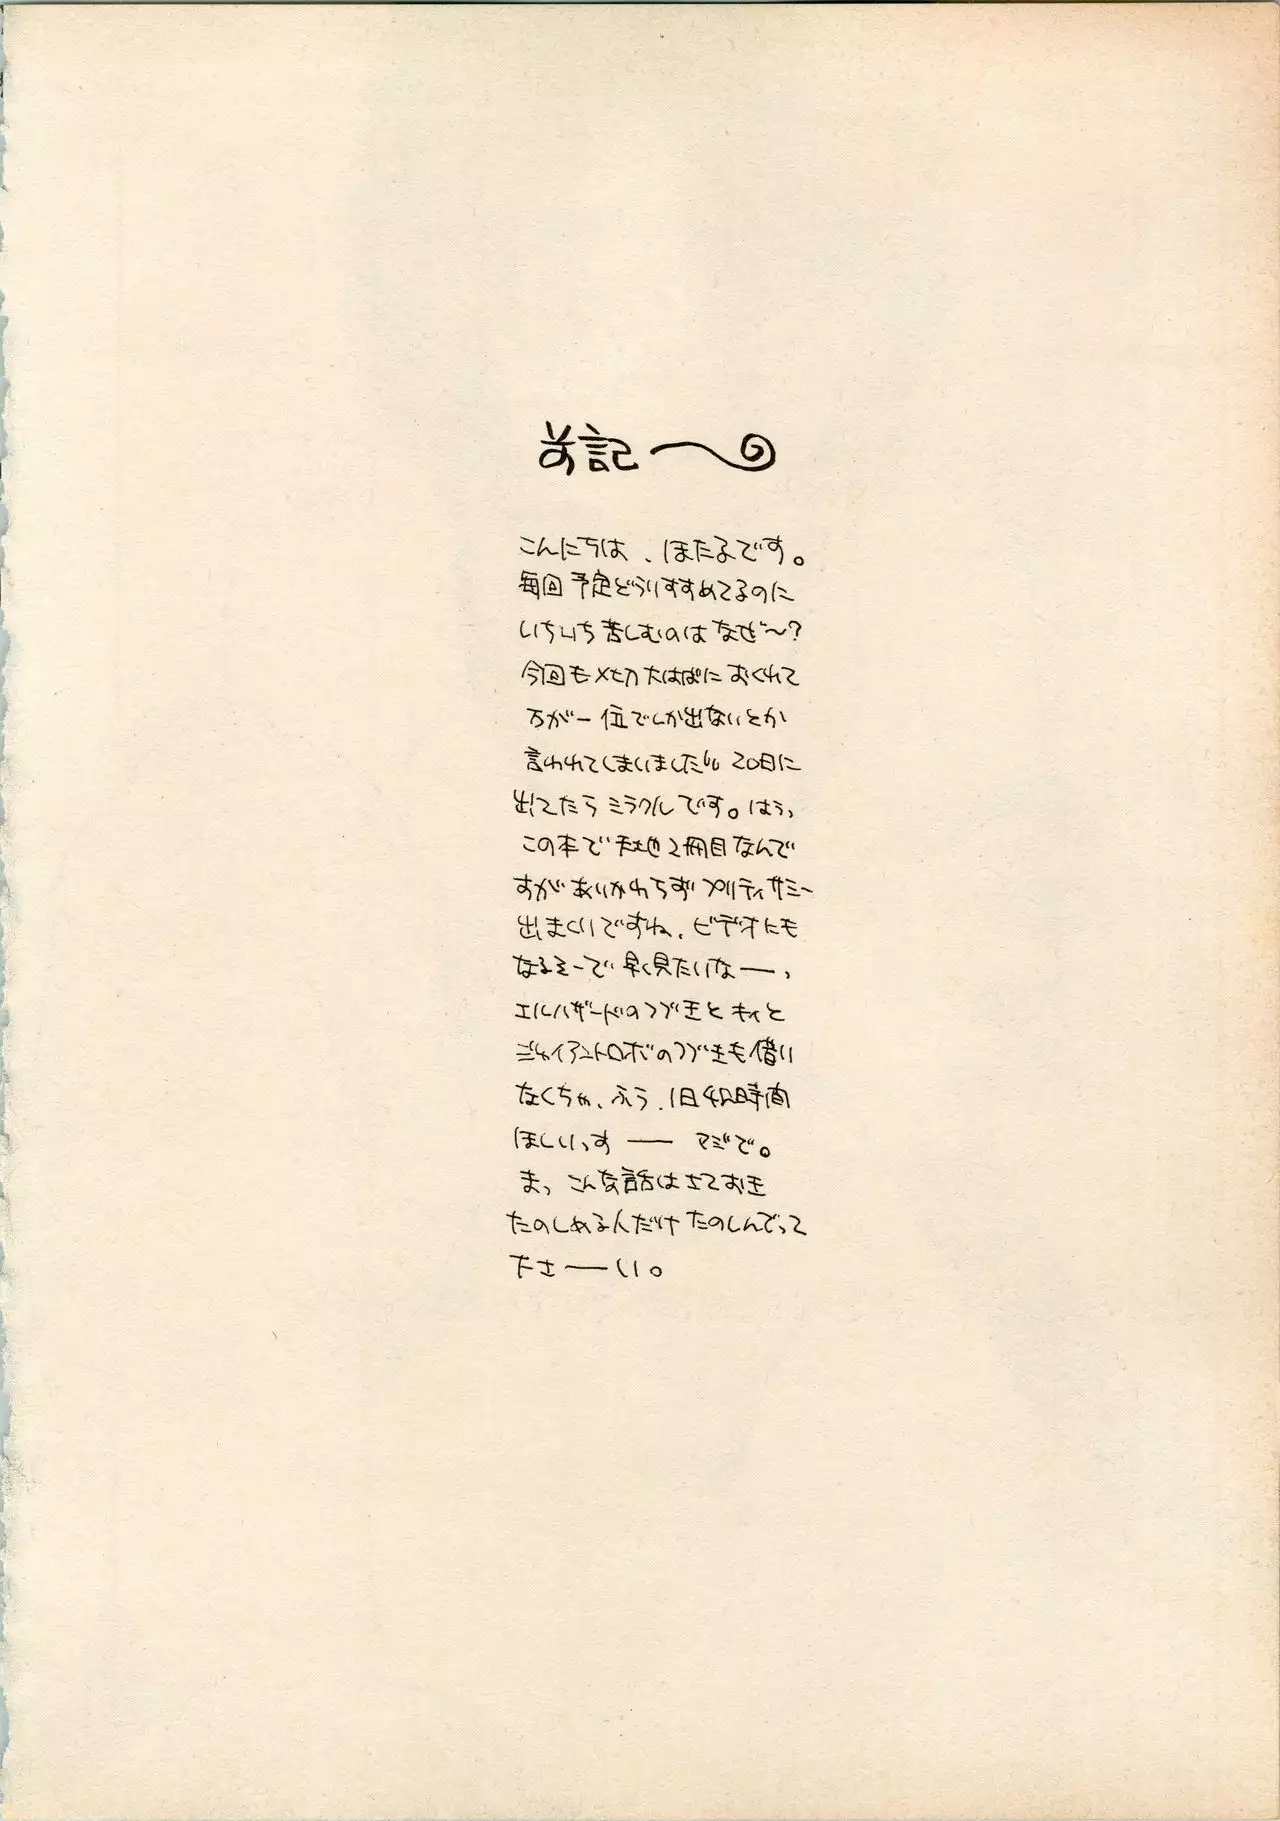 前記〜
こんにちは、ほたるです。
毎回予定どうりすすめてるのに
いちいち苦しむのはなぜ〜?
今回もメ切大はばにおくれて
万が一位でしか出ないとか
言われてしまいました 20日に
出てたらミラクルです。はうっ
この本で天地2冊目なんで
すがあいかわらずプリティサミー
出まくりですね、ビデオにも
なるそーで早く見たいなーっ
エルハザードのつづきと
ジャイアントロボのつづきも借り
なくちゃ、ふう、1日42時間
ほしいっすーマジで。
まっこんな話はさておき
たのしめる人だけたのしんでって
たさーい。